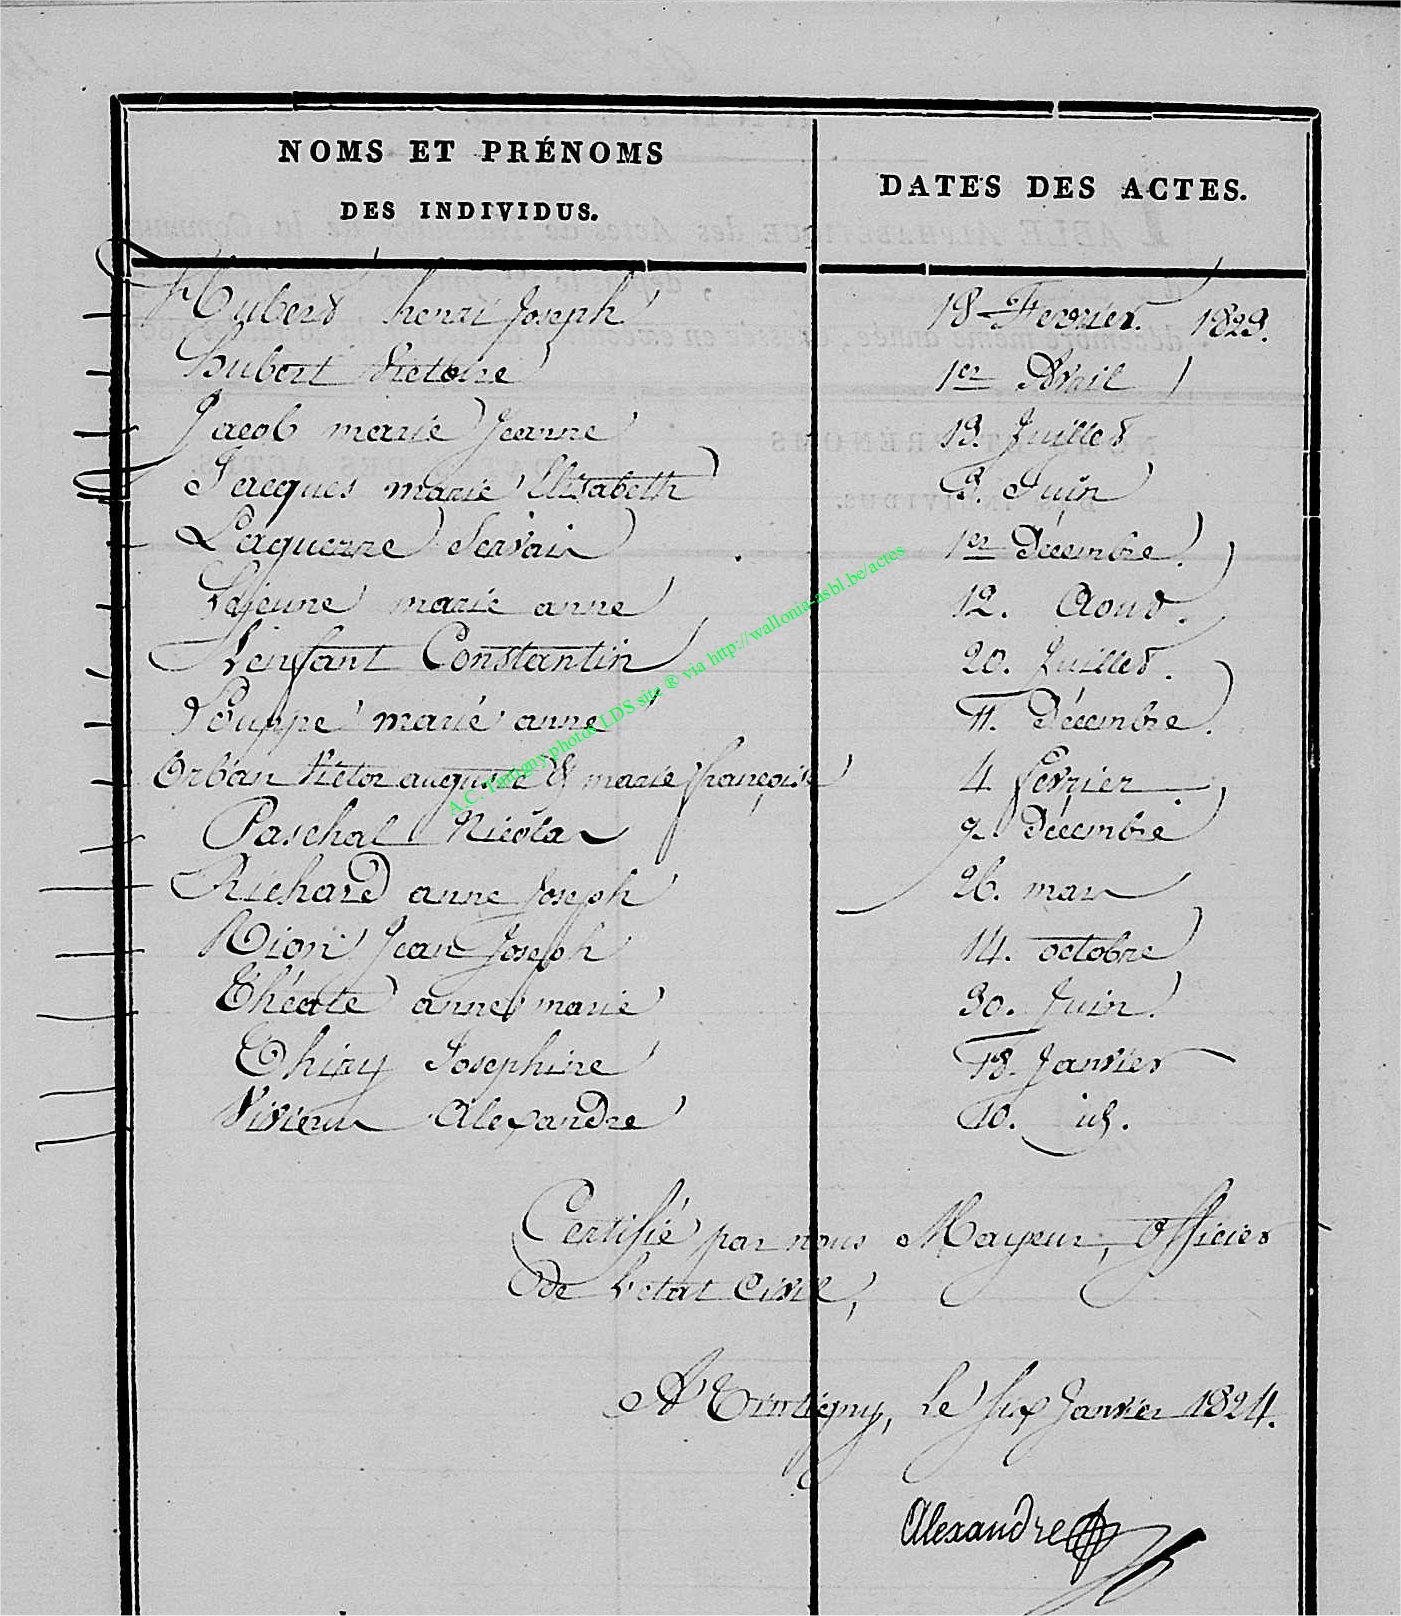 NOMS ET PRÉNOMS
DES INDIVIDUS.
DATES DES ACTES.
Hubert henri Joseph 18 Fevrier. 1823.
hubert Victoire 1er Avril
Jacob marie Jeanne 13. Juillet
Jacques marie Elisabeth 3. Juin
Laguerre Servais 1er Décembre.
Lajeune marie anne 12. Aout.
Lenfant Constantin 20. Juillet.
Louppe marie anne 11. Décembre.
Orban Victor auguste & marie françoise 4 fevrier
Paschal Nicolas 9. Décembre
Richard anne Joseph 26. mars
Rion Jean Joseph 14. octobre
Théate anne marie 30. Juin.
Thiry Josephine 18. Janvier
Alexandre 10. id.
Certifié par nous Mayeur, Officier
de l'etat Civil,
A Tintigny, le six Janvier 1824.
Alexandre
A.C. Tintigny photos LDS site ® via http://wallonia-asbl.be/actes